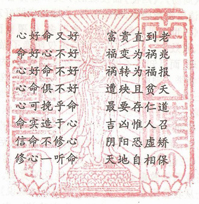 心好命又好　富貴直到老
命好心不好　福變為禍兆
心好命不好　禍轉為福報
心命俱不好　遭殃且貧夭
心可挽乎命　最要存仁道
命實造于心　吉凶惟人召
信命不修心　陰陽恐虛矯
修心一聽命　天地自相保